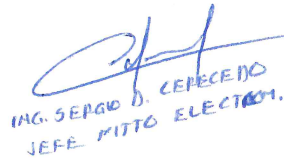 ING. SERGIO D. CEPECEDO
JEFE MTTO ELECTROM.